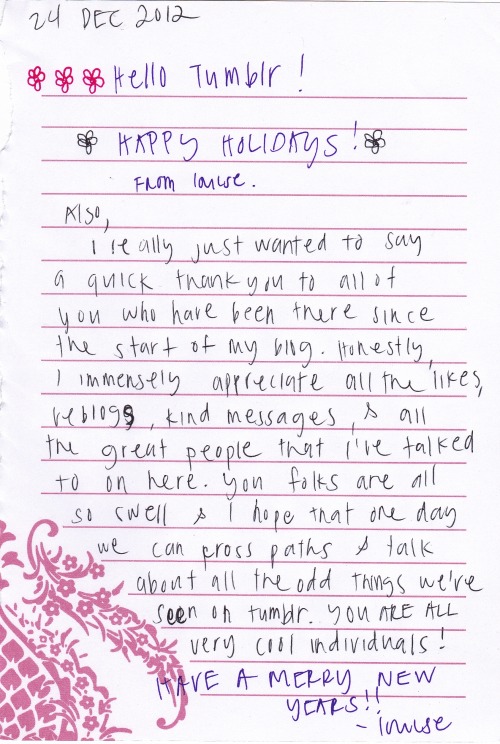 24 DEC 2012
Hello Tumblr!
HAPPY HOLIDAYS!
From louise.
Also,
I really just wanted to say
a quick thank you to all of
you who have been there since
the start of my blog. Honestly,
I immensely appreciate all the likes,
reblogs, kind messages, & all
the great people that I've talked
to on here. You folks are all
so swell & I hope that one day
we can cross paths & talk
about all the odd things we've
seen on tumblr. YOU ARE ALL
very cool individuals!
HAVE A MERRY NEW
YEARS!!
- louise